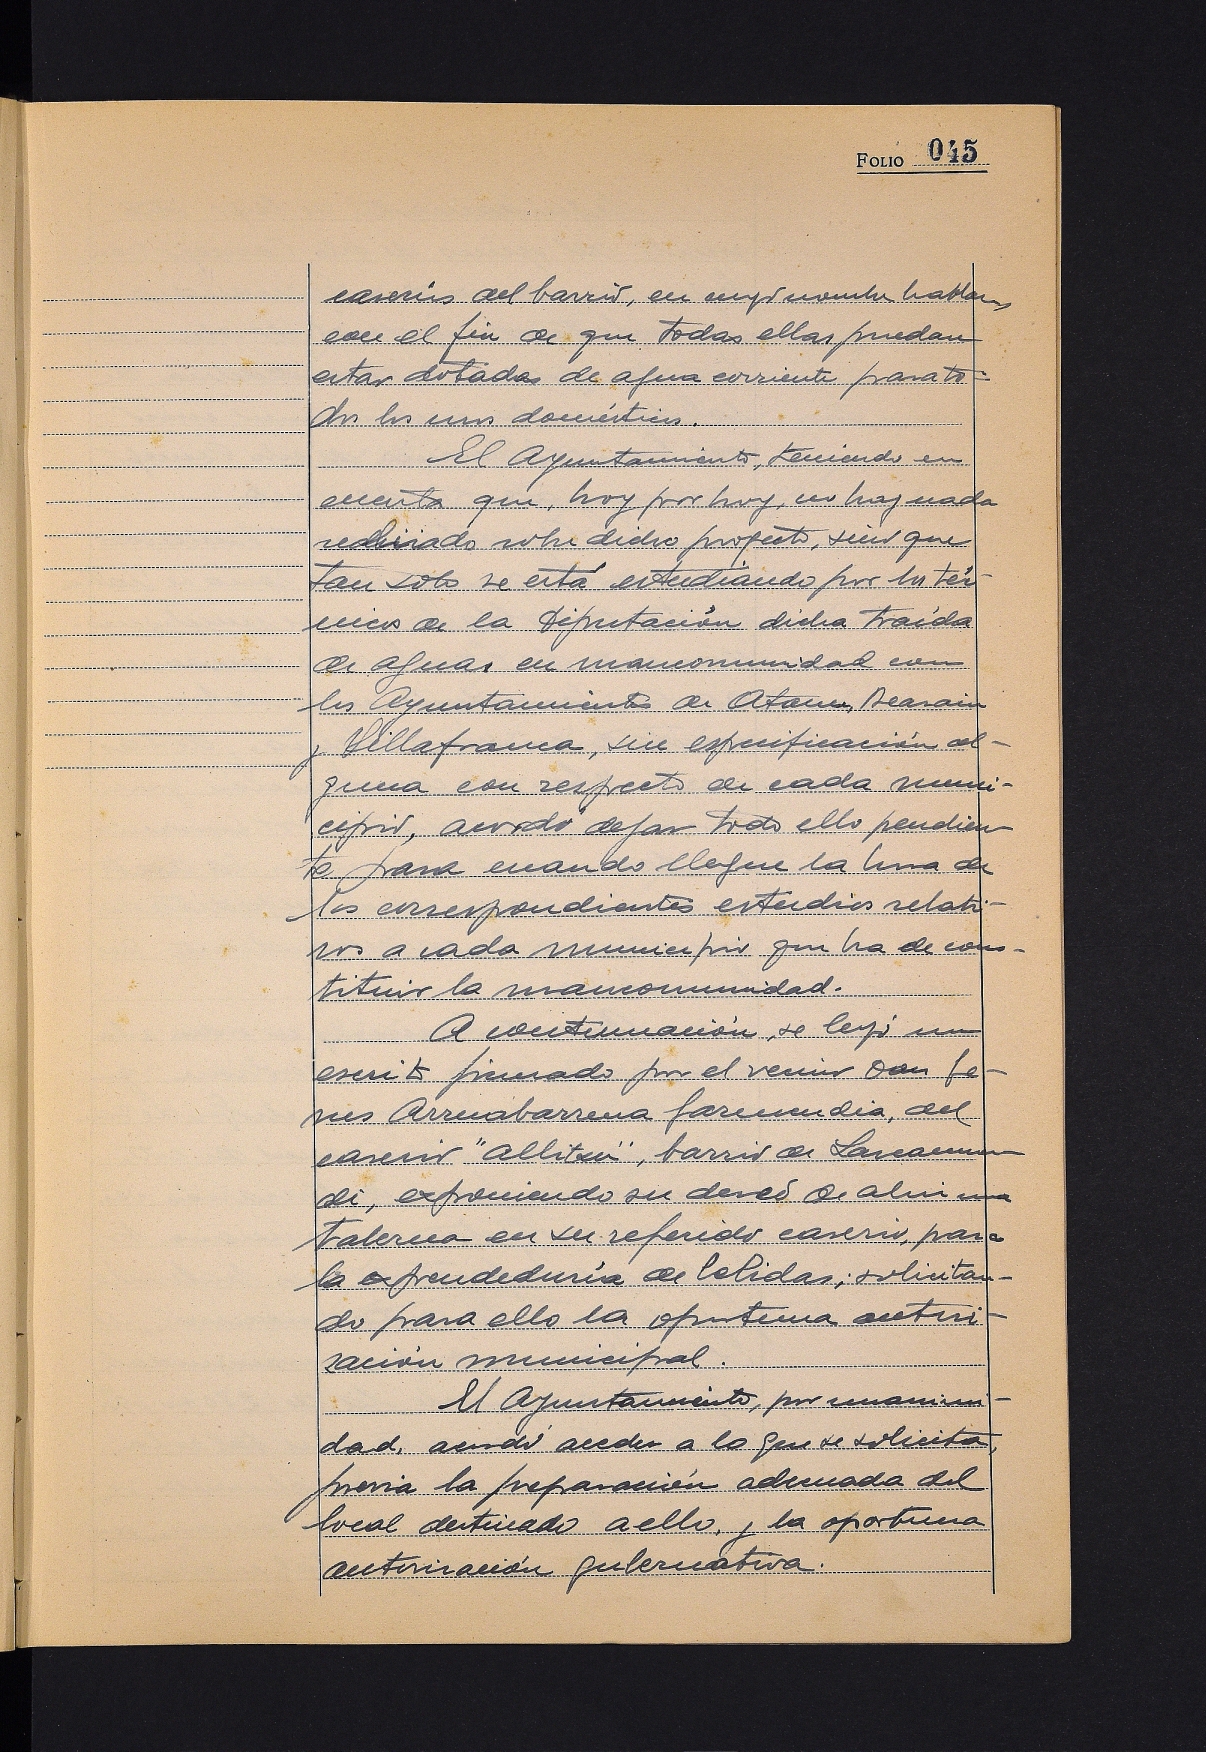 FOLIO 045
caseríos del barrio, en cuyo nombre hablan,
con el fin de que todas ellas puedan
estar dotadas de agua corriente para to-
dos los usos domésticos.
El Ayuntamiento, teniendo en
cuenta que, hoy por hoy, no hay nada
sobre dicho proyecto, sino que
tan solo se está estudiando por los téc-
nicos de la Diputación dicha traída
de aguas en mancomunidad con
los Ayuntamientos de Ataun, Beasain
y Villafranca, sin especificación al-
guna con respecto de cada muni-
cipio, acordó dejar todo ello pendien-
te para cuando llegue la hora de
los correspondientes estudios relati-
vos a cada municipio que ha de cons-
tituir la mancomunidad.
A continuación, se leyó un
escrito firmado por el vecino Don Je-
sus Arruabarrena Garmendia, del
caserío "Allitsu", barrio de Lazcaomen-
di, exponiendo su deseo de abrir una
taberna en su referido caserío, para
la expendeduría de bebidas; solicitan-
do para ello la oportuna autori-
zación municipal.
El Ayuntamiento, por unanimi-
dad, acordó acceder a lo que se solicita,
previa la preparación adecuada del
local destinado a ello, y la oportuna
autorización gubernativa.